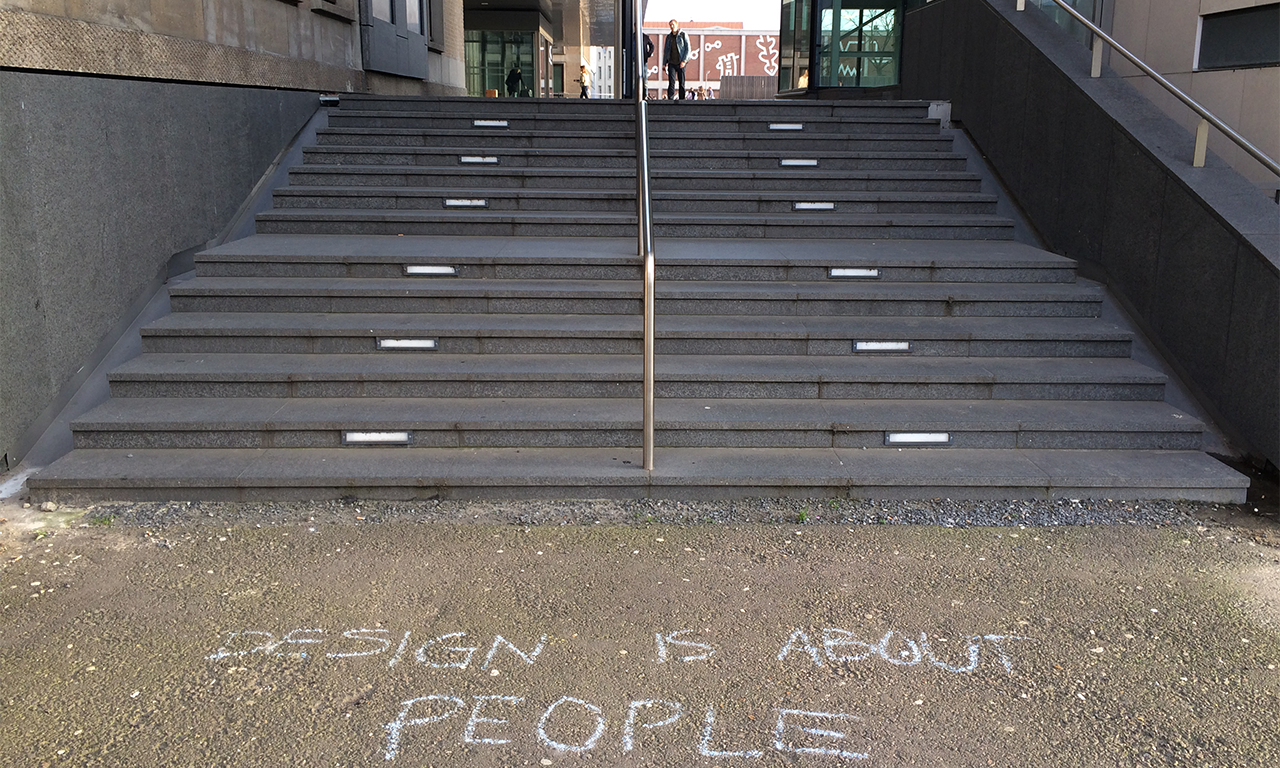 DESIGN IS ABOUT
PEOPLE